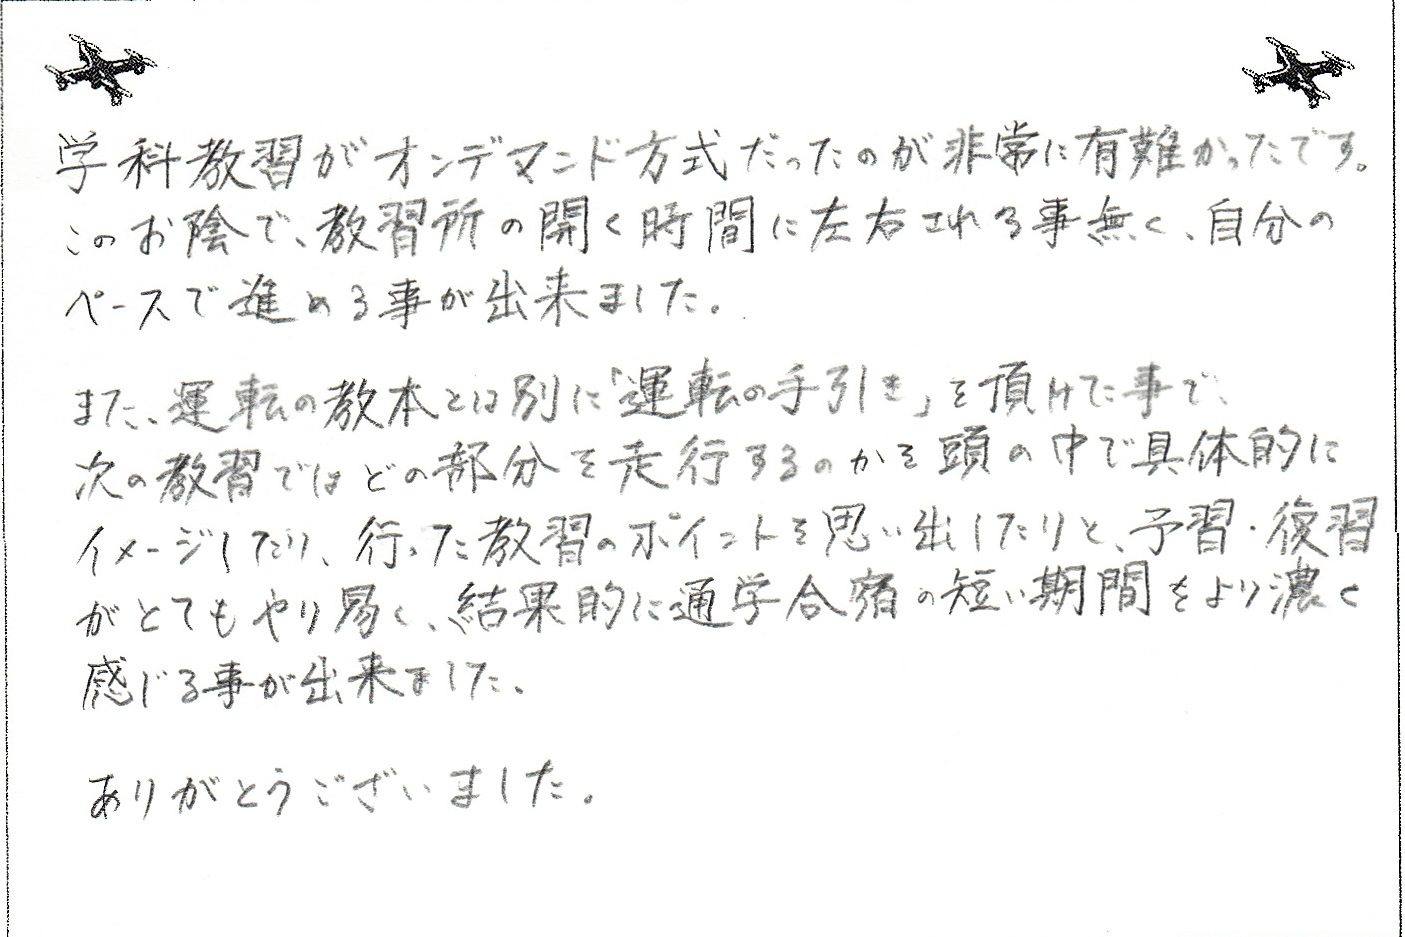 学科教習がオンデマンド方式だったのが非常に有難かったです。
このお陰で、教習所の開く時間に左右される事無く、自分の
ペースで進める事が出来ました。
また、運転の教本とは別に「運転の手引き」を頂けた事で、
次の教習ではどの部分を走行するのかを頭の中で具体的に
イメージしたり、行った教習のポイントを思い出したりと、予習・復習
がとてもやり易く、結果的に通学合宿の短い期間をより濃く
感じる事が出来ました。
ありがとうございました。